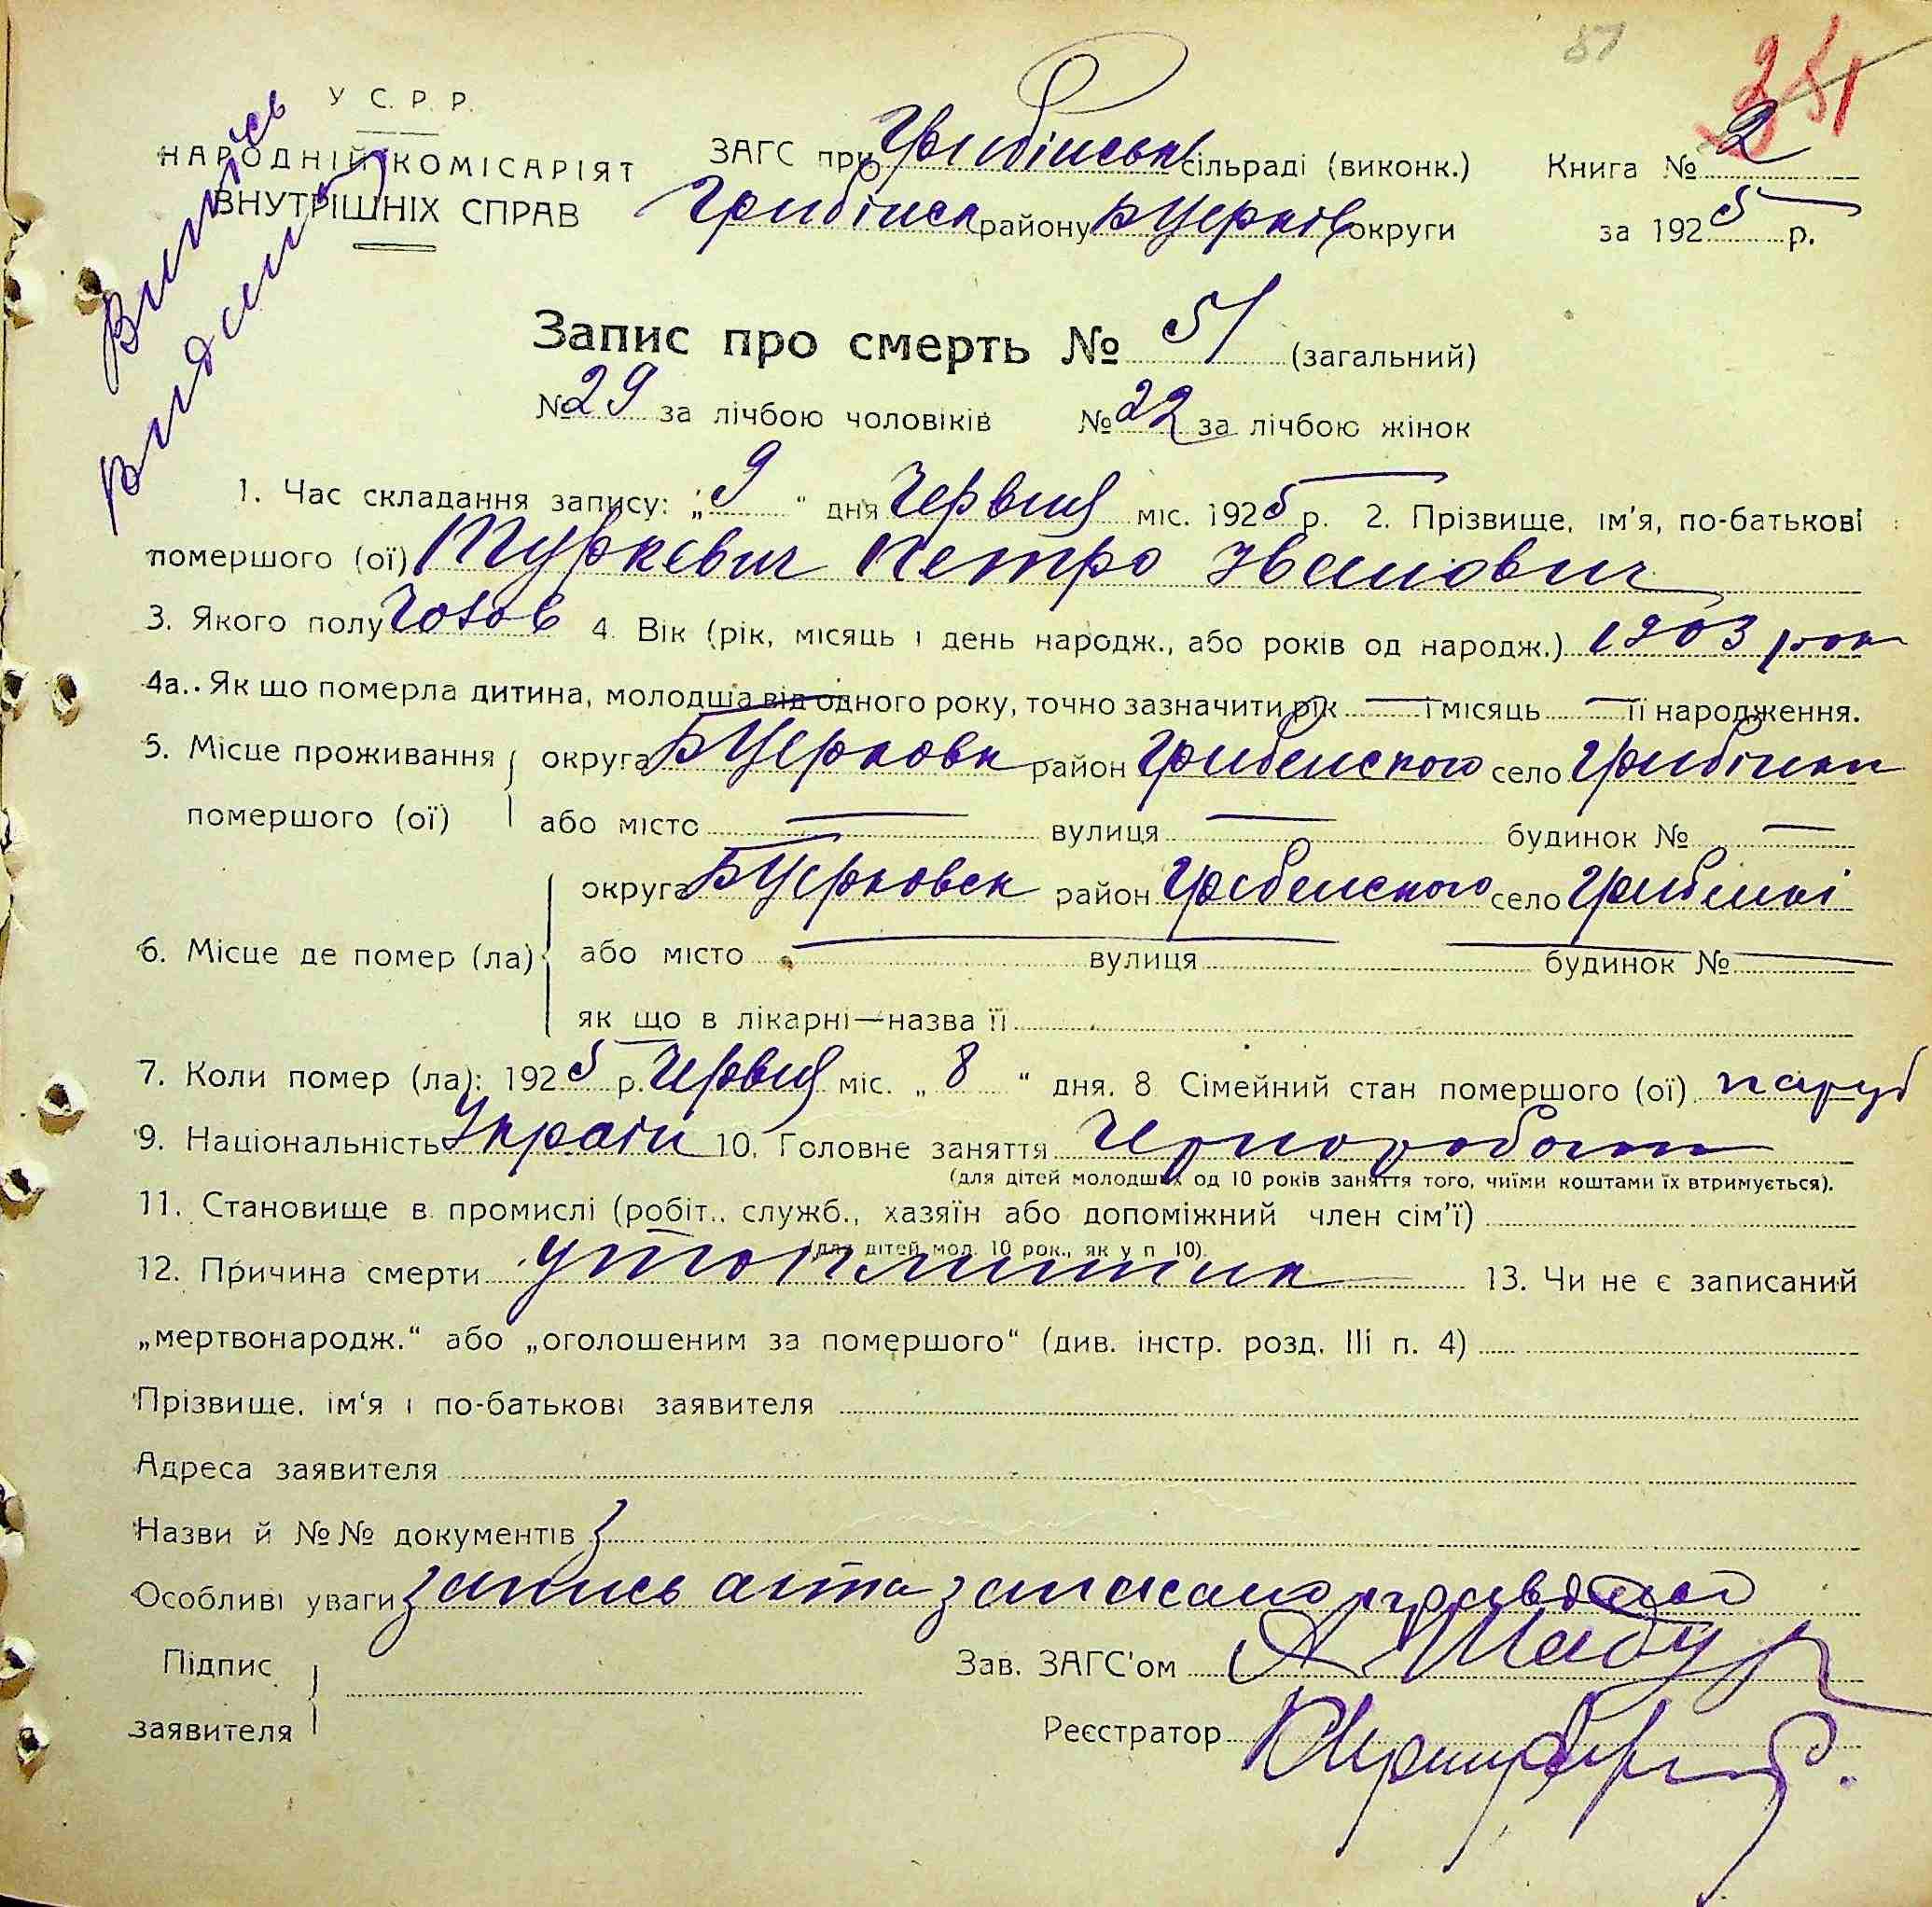 51
251
У С. Р. Р.
НАРОДНІЙ КОМІСАРІЯТ
ВНУТРІШНІХ СПРАВ
Випись
видана
ЗАГС при Гребінськ сільраді (виконк.)
Гребінск району БЦерків округи
Книга № 2
за 1925 р.
Запис про смерть № 51 (загальний)
№ 29 за лічбою чоловіків № 22 за лічбою жінок
1. Час складання запису: „9“ дня Червня міс. 1925 р. 2. Прізвище, ім'я, по-батькові
помершого (ої) Туркевич Петро Іванович
3. Якого полу Чолов 4. Вік (рік, місяць і день народж., або років од народж.) 1903 рок
4а. Як що померла дитина, молодша від одного року, точно зазначити рік — і місяць — її народження.
5. Місце проживання помершого (ої) округа БЦерковськ район Гребенского село Гребінки
або місто — вулиця — будинок № —
6. Місце де помер (ла) округа БЦерковск район Гребенского село Гребінкі
або місто — вулиця — будинок № —
як що в лікарні—назва її
7. Коли помер (ла): 1925 р. Червня міс. „8“ дня. 8 Сімейний стан помершого (ої) паруб
9. Національність Україн 10. Головне заняття Чернороботи
(для дітей молодших од 10 років заняття того, чиїми коштами їх втримується).
11. Становище в промислі (робіт., служб., хазяїн або допоміжний член сім'ї)
(для дітей мол. 10 рок., як у п 10).
12. Причина смерти 13. Чи не є записаний
„мертвонародж.“ або „оголошеним за помершого“ (див. інстр. розд. III п. 4)
Прізвище, ім'я і по-батькові заявителя
Адреса заявителя
Назви й №№ документів
Особливі уваги запись акта записано
Підпис заявителя
Зав. ЗАГС'ом
Реєстратор